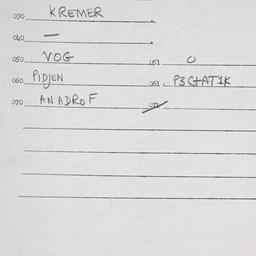 030 KREMER
040 —
050 VOG 051 0
060 PIDJEN 061 P3CHAT1K
070 ANADROF 071